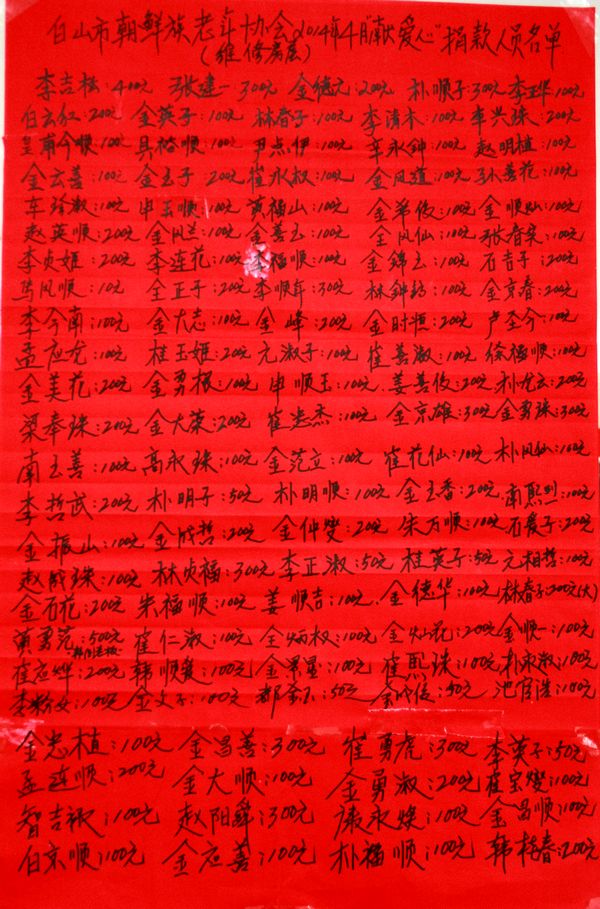 白山市朝鲜族老年协会2014年4月"献爱心"捐款人员名单
(维修房屋)
李吉松:400元 张建一300元 金德元:200元 朴顺子:300元 李玉华:100元
白云红:200元 金英子:100元 林春子:100元 李清木:100元 车兴珠:200元
皇甫今顺:100元 具裕顺:100元 尹点伊:100元 辛永钟:100元 赵明植:100元
金云善:100元 金玉子:200元 崔永叔:100元 金凤道:100元 孙善花:100元
车珍淑:100元 申玉顺:100元 黄福山:100元 金羊俊:100元 金顺灿:100元
赵英顺:200元 金凤兰:100元 金善玉:100元 全凤仙:100元 张春実:100元
李贞姬:200元 李莲花:100元 李福顺:100元 金锦玉:100元 石吉子:200元
马凤顺:10元 全正子:20元 李顺年:30元 林钟 :100元 金京春:20元
李今南:100元 金大志:100元 金峰:200元 金时恒:200元 卢圣今:100元
孟应龙:100元 桂玉姬:20元 元淑子:100元 崔善淑:100元 徐福顺:100元
金美花:200元 金勇根:100元 申顺玉:100元 姜善俊:200元 朴龙云:200元
梁奉珠:200元 金大荣:200元 崔忠杰:100元 金京雄:300元 金勇珠:300元
南玉善:100元 高永珠:100元 金范立:100元 崔花仙:100元 朴凤仙:100元
李哲武:200元 朴明子:50元 朴明顺:100元 金玉香:200元 南熙烈:100元
金振山:100元 金成哲:200元 金仲燮:200元 朱万顺:100元 石爱子:200元
赵成珠:100元 林贞福:300元 李正淑:50元 桂英子:50元 元相哲:100元
金石花:200元 朱福顺:100元 姜顺吉:100元 金德华:100元 林春子:200元(大)
黄勇范:500元 崔仁淑:100元 全炳权:100元 金灿花:200元 金顺一:100元
崔应烨:200元 韩顺爱:100元 金景星:100元 崔熙珠:100元 朴永淑:100元
李粉女:100元 金文子:100元 都金玉:50元 金成俊:50元 池官浩:100元
金忠植:100元 金昌善:300元 崔勇虎:300元 李英子:50元
孟莲顺:200元 金大顺:100元 金勇淑:200元 崔宝燮:100元
智吉禄:100元 赵阳舜:300元 康永焕:100元 金昌顺:100元
白京顺:100元 金应善:100元 朴福顺:100元 韩桂春:200元